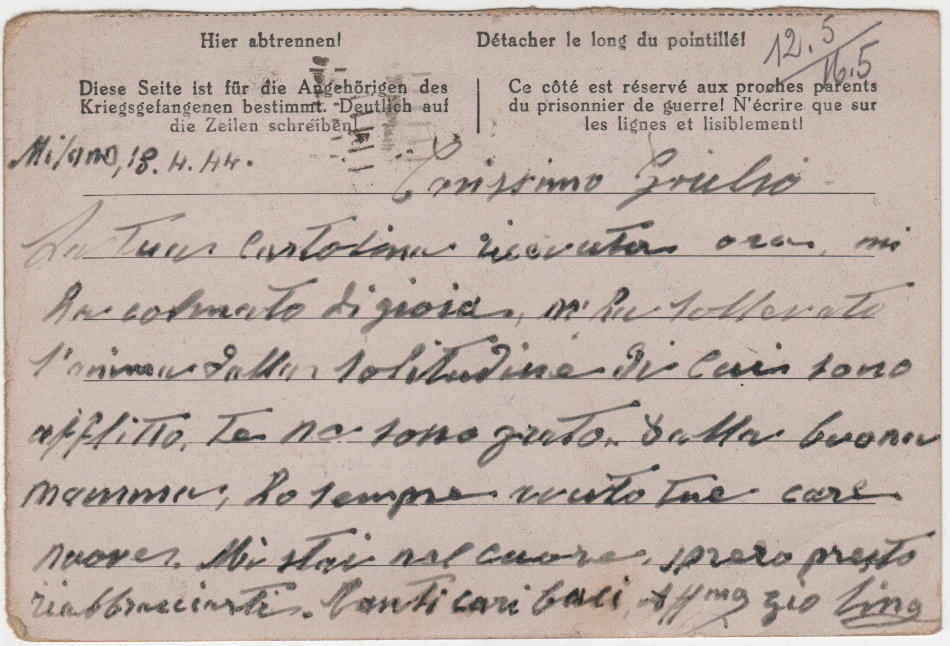 Hier abtrennen! Détacher le long du pointillé!
12.5
16.5
Diese Seite ist für die Angehörigen des
Kriegsgefangenen bestimmt. Deutlich auf
die Zeilen schreiben!
Ce côté est réservé aux proches parents
du prisonnier de guerre! N'écrire que sur
les lignes et lisiblement!
Milano, 18.4.44.
Carissimo Giulio
La tua cartolina ricevuta ora, mi
ha colmato di gioia, m'ha sollevato
l'anima dalla solitudine di cui sono
afflitto, te ne sono grato. Dalla buona
mamma, ho sempre avuto tue care
nuove. Mi stai nel cuore, spero presto
riabbracciarti. Tanti cari baci, Aff.mo zio Lino